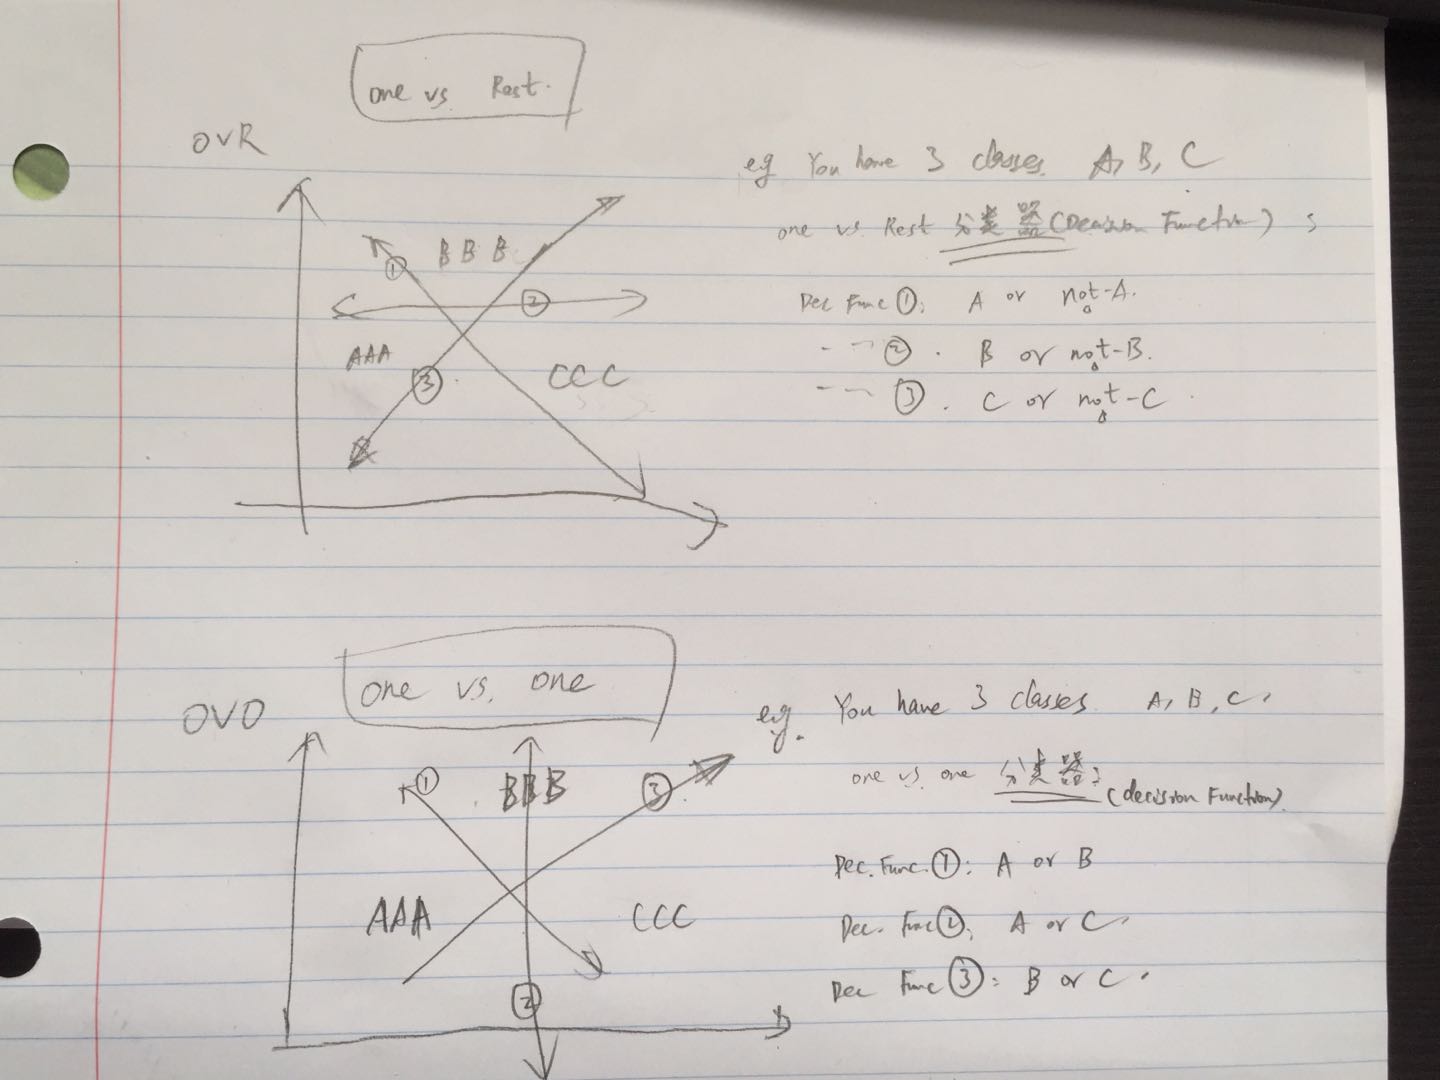 one vs. Rest.
OVR
① BBB
②
AAA
③ CCC
eg You have 3 classes. A, B, C
one vs. Rest 分类器 (Decision Function)
Dec Func ①: A or not-A.
②. B or not-B.
③. C or not-C
one vs. one
OVO
① BBB ③
AAA CCC
②
eg. You have 3 classes A, B, C.
one vs. one 分类器:
(decision Function)
Dec. Func. ①: A or B
Dec. Func ②: A or C.
Dec Func ③: B or C.